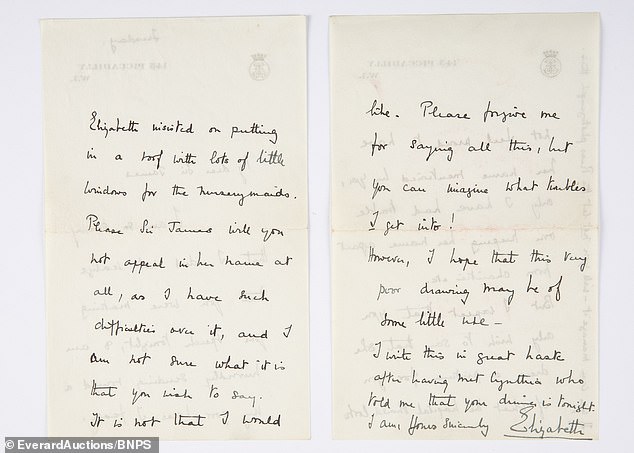 Elizabeth insisted on putting
in a roof with lots of little
windows for the nurserymaids.
Please Sir James will you
not appeal in her name at
all, as I have such
difficulties over it, and I
am not sure what it is
that you wish to say.
It is not that I would
like. Please forgive me
for saying all this, but
you can imagine what troubles
I get into!
However, I hope that this very
poor drawing may be of
some little use –
I write this in great haste
after having met Cynthia who
told me that your dinner is tonight.
I am, Yours Sincerely
Elizabeth
145 PICCADILLY
W.1.
145 PICCADILLY
W.1.
© EverardAuctions/BNPS